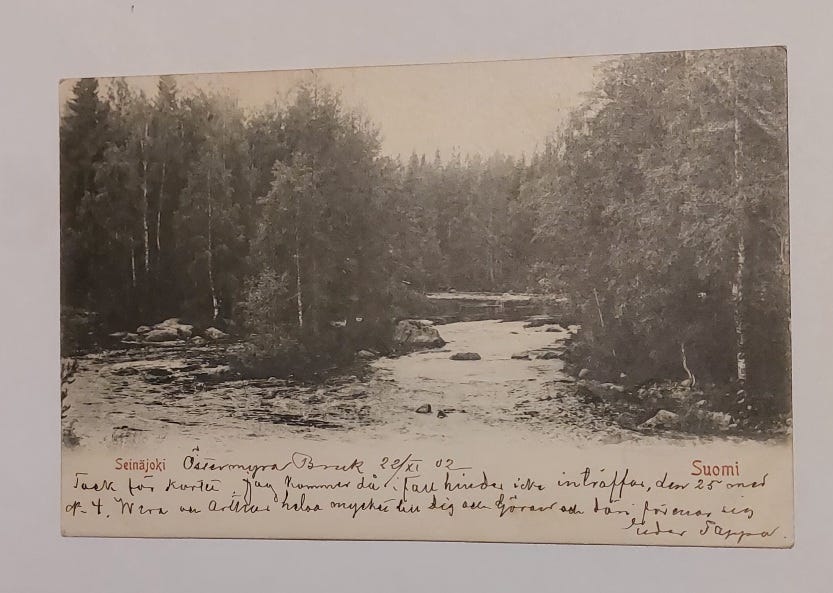 Seinäjoki Östermyra Bruk 22/XI 02 Suomi
Tack för kortet Jag kommer då i fall hinder icke inträffar, den 25 med
N 4. Wera och Arthur helsa mycket till dig och Göran och dari förenar sig
Pappa.